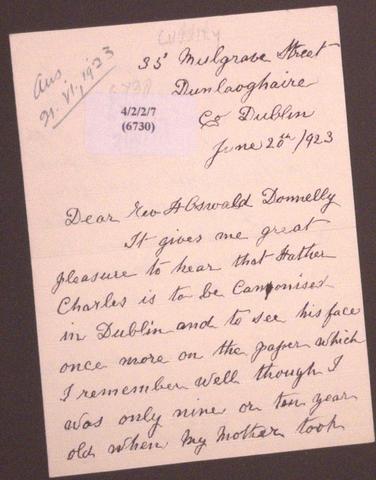 Ans.
21.VI.1923
6730
4/2/2/7
(6730)
35 Mulgrave Street
Dunlaoghaire
Co Dublin
June 20th/1923
Dear Rev F Oswald Donnelly
It gives me great
pleasure to hear that Father
Charles is to be Canonised
in Dublin and to see his face
once more on the paper which
I remember well though I
was only nine or ten year
old when my Mother took